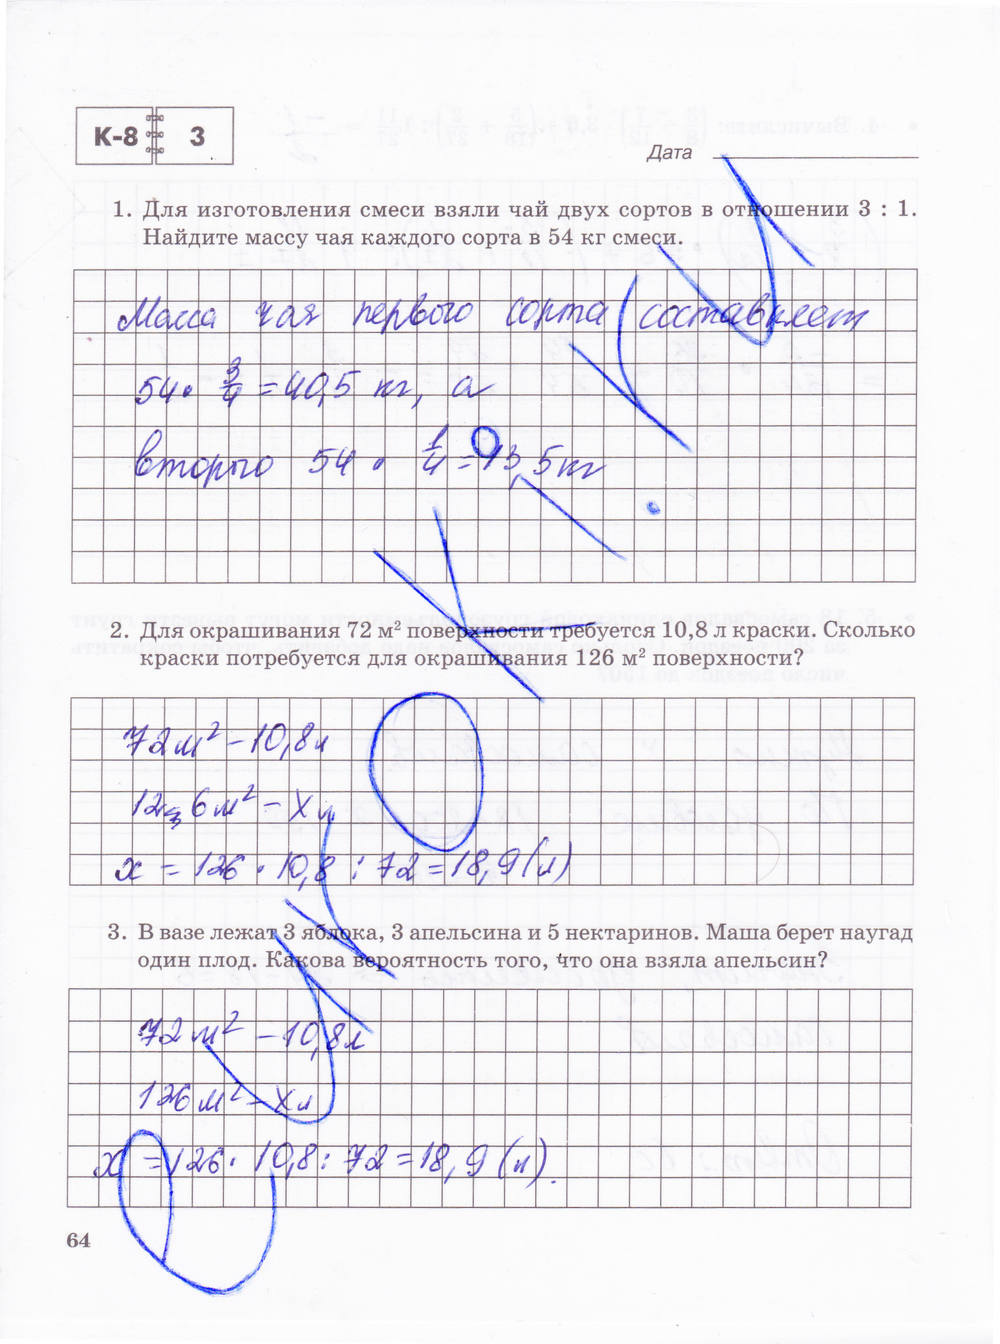 К-8 3
Дата
1. Для изготовления смеси взяли чай двух сортов в отношении 3 : 1.
Найдите массу чая каждого сорта в 54 кг смеси.
Масса чая первого сорта составляет
54 · 3/4 = 40,5 кг, а
второго 54 · 1/4 = 13,5 кг
2. Для окрашивания 72 м² поверхности требуется 10,8 л краски. Сколько
краски потребуется для окрашивания 126 м² поверхности?
72 м² – 10,8 л
126 м² – х л
х = 126 · 10,8 : 72 = 18,9 (л)
3. В вазе лежат 3 яблока, 3 апельсина и 5 нектаринов. Маша берет наугад
один плод. Какова вероятность того, что она взяла апельсин?
72 м² – 10,8 л
126 м² – х л
х = 126 · 10,8 : 72 = 18,9 (л).
64